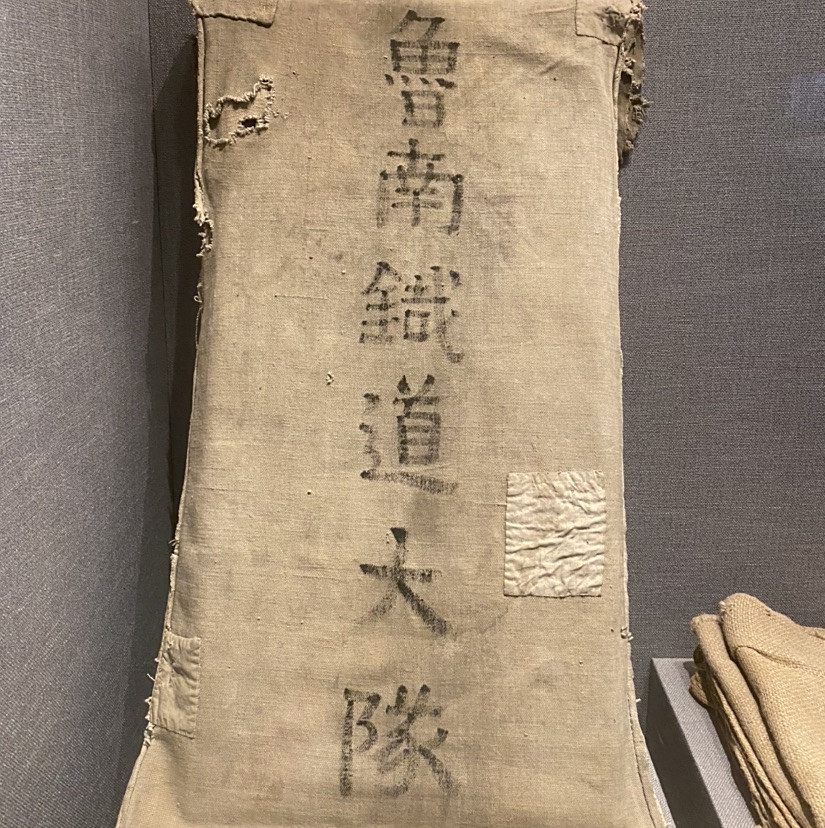 魯南鐵道大隊